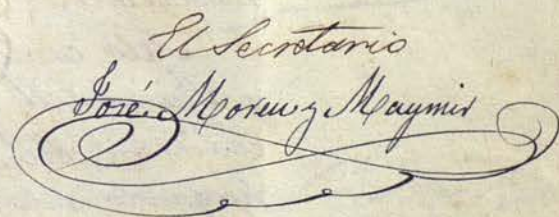 El Secretario
José Moreu y Maymir